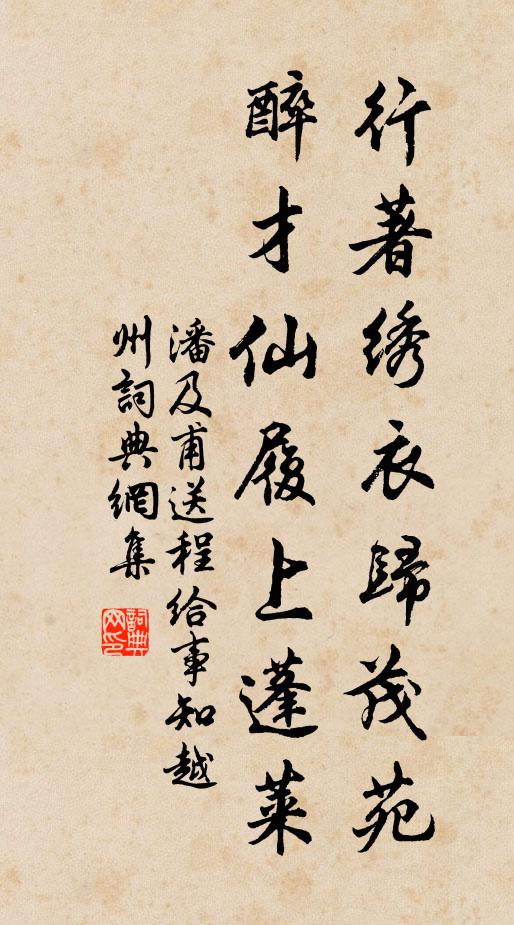 行著绣衣歸茂苑
醉才仙履上蓬萊
潘及甫送程给事知越
州詞典網集
詞典
网印